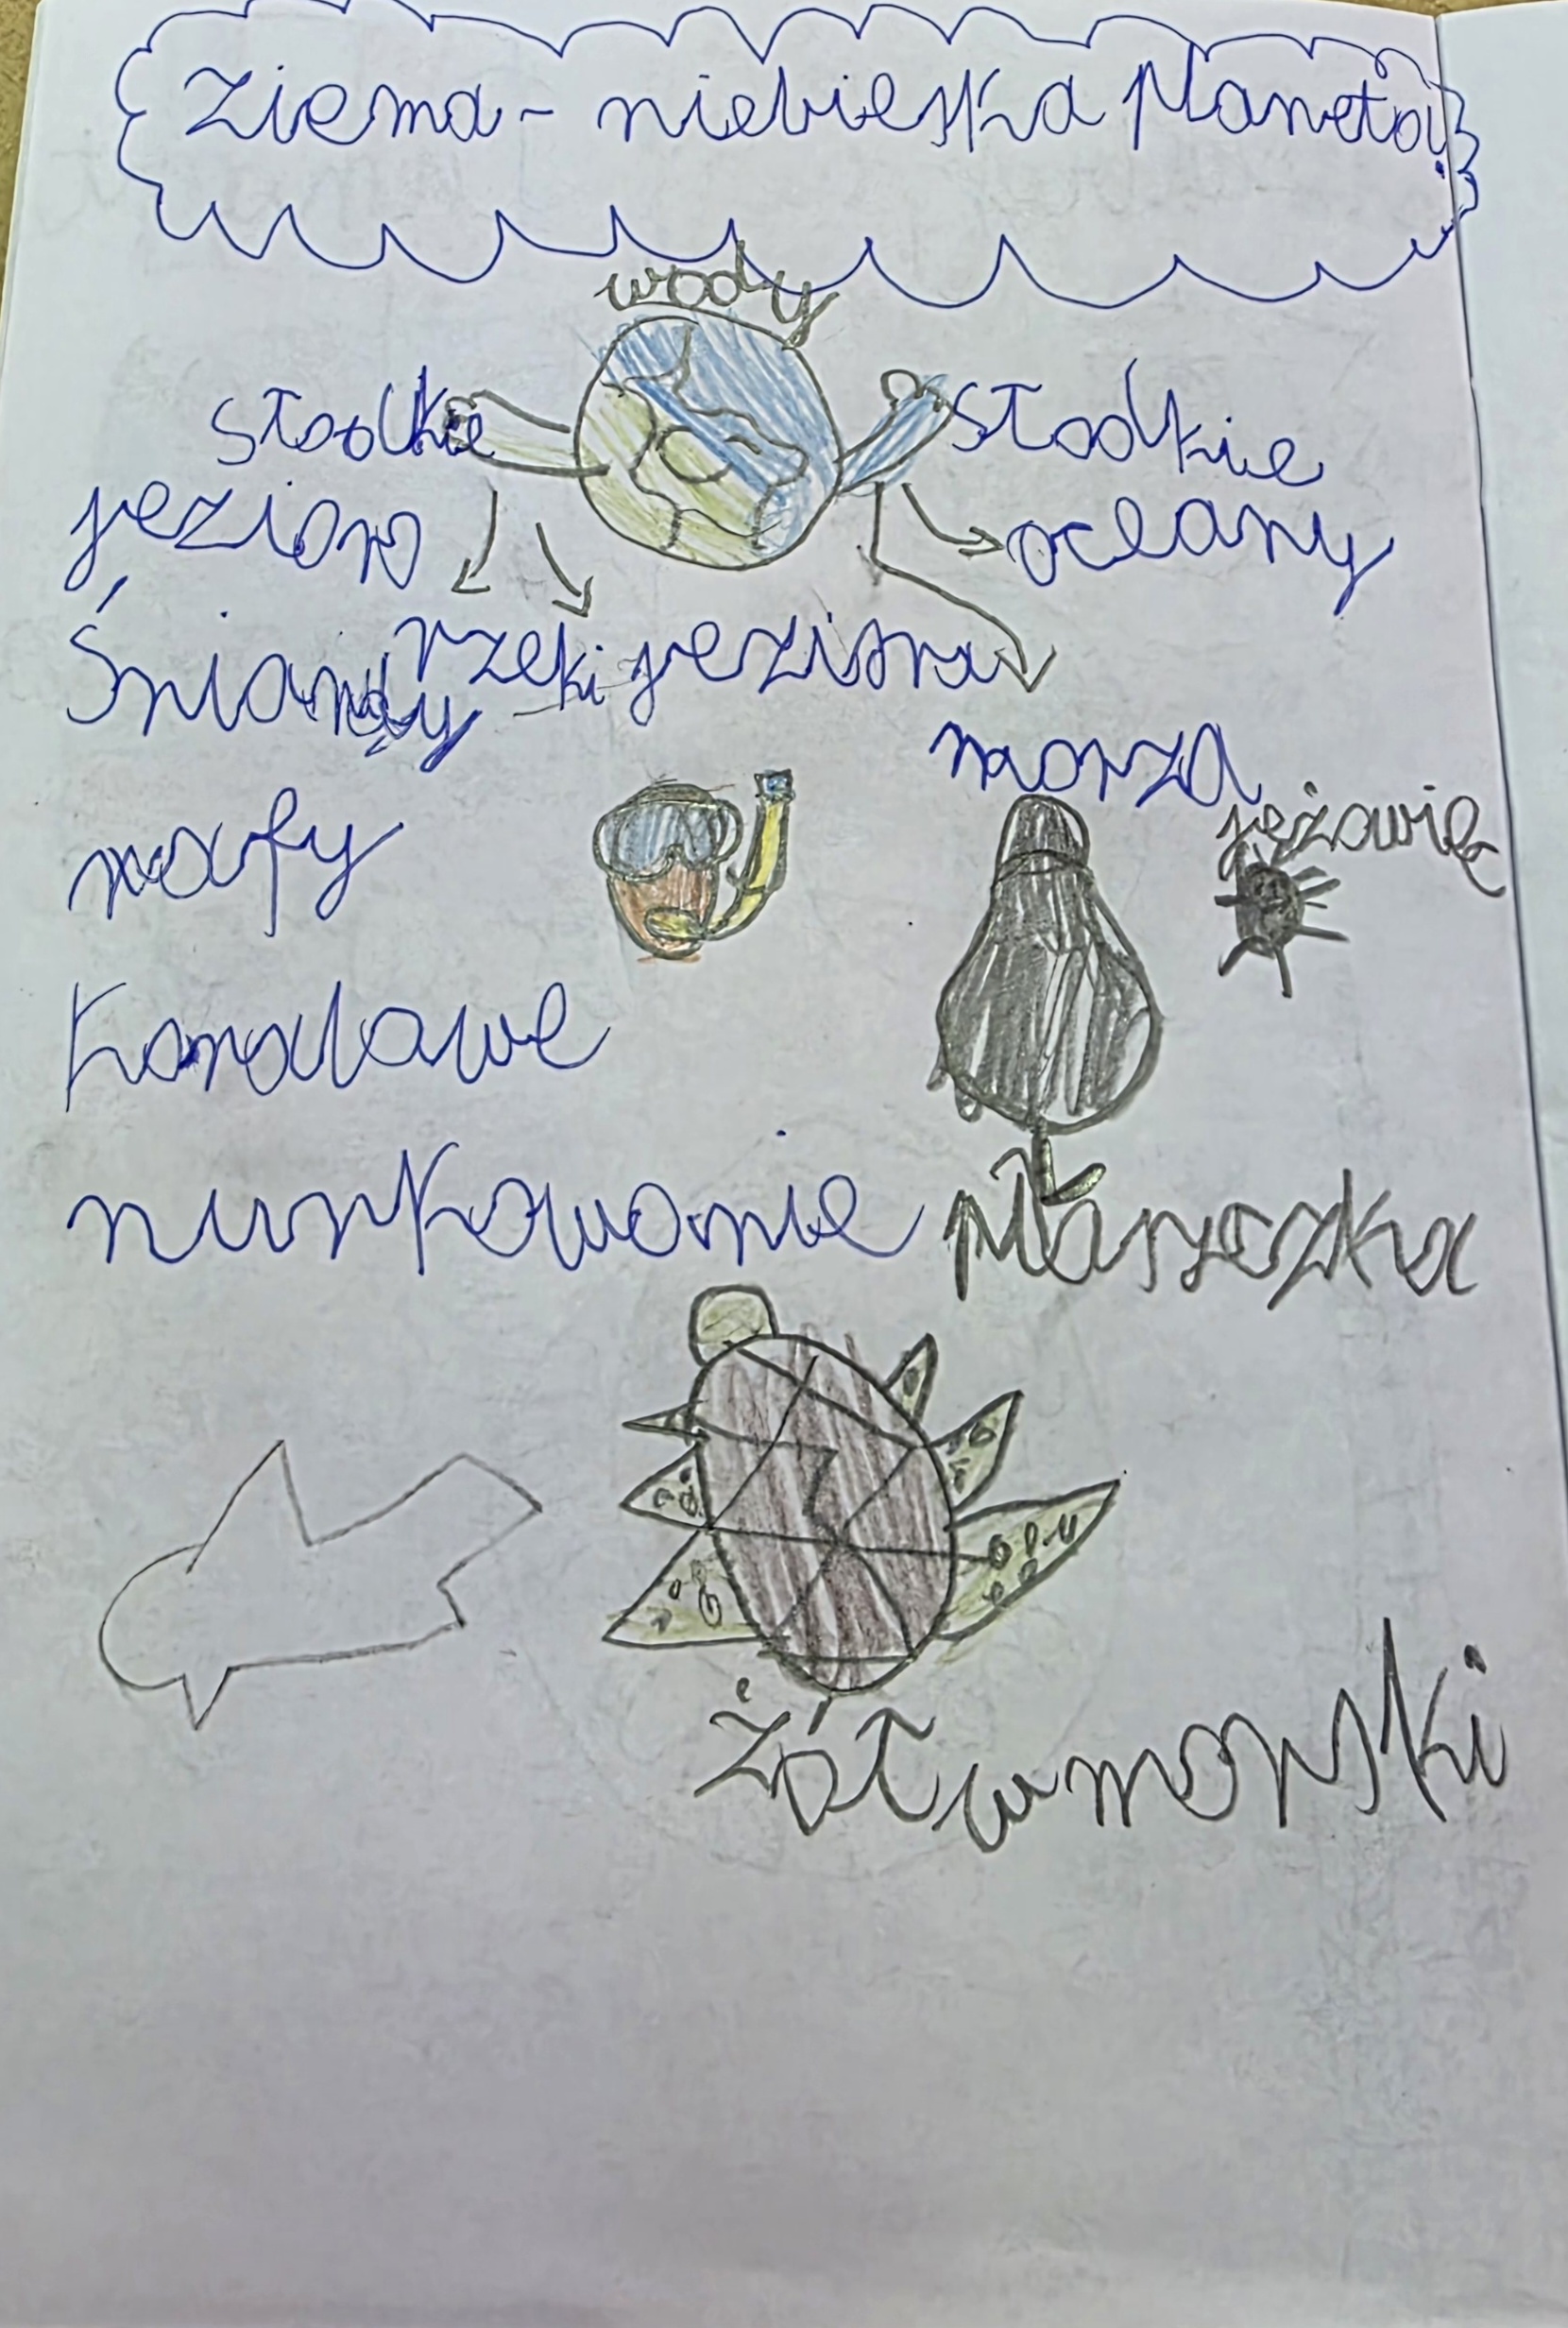 Ziema - niebieska planeta!
wody
słodkie
słodkie
jezioro
oceany
Śniardwy
rzeki jeziora
morza
jeżowię
rafy
Koralowe
nurkowanie
płaszczka
Żółw morski